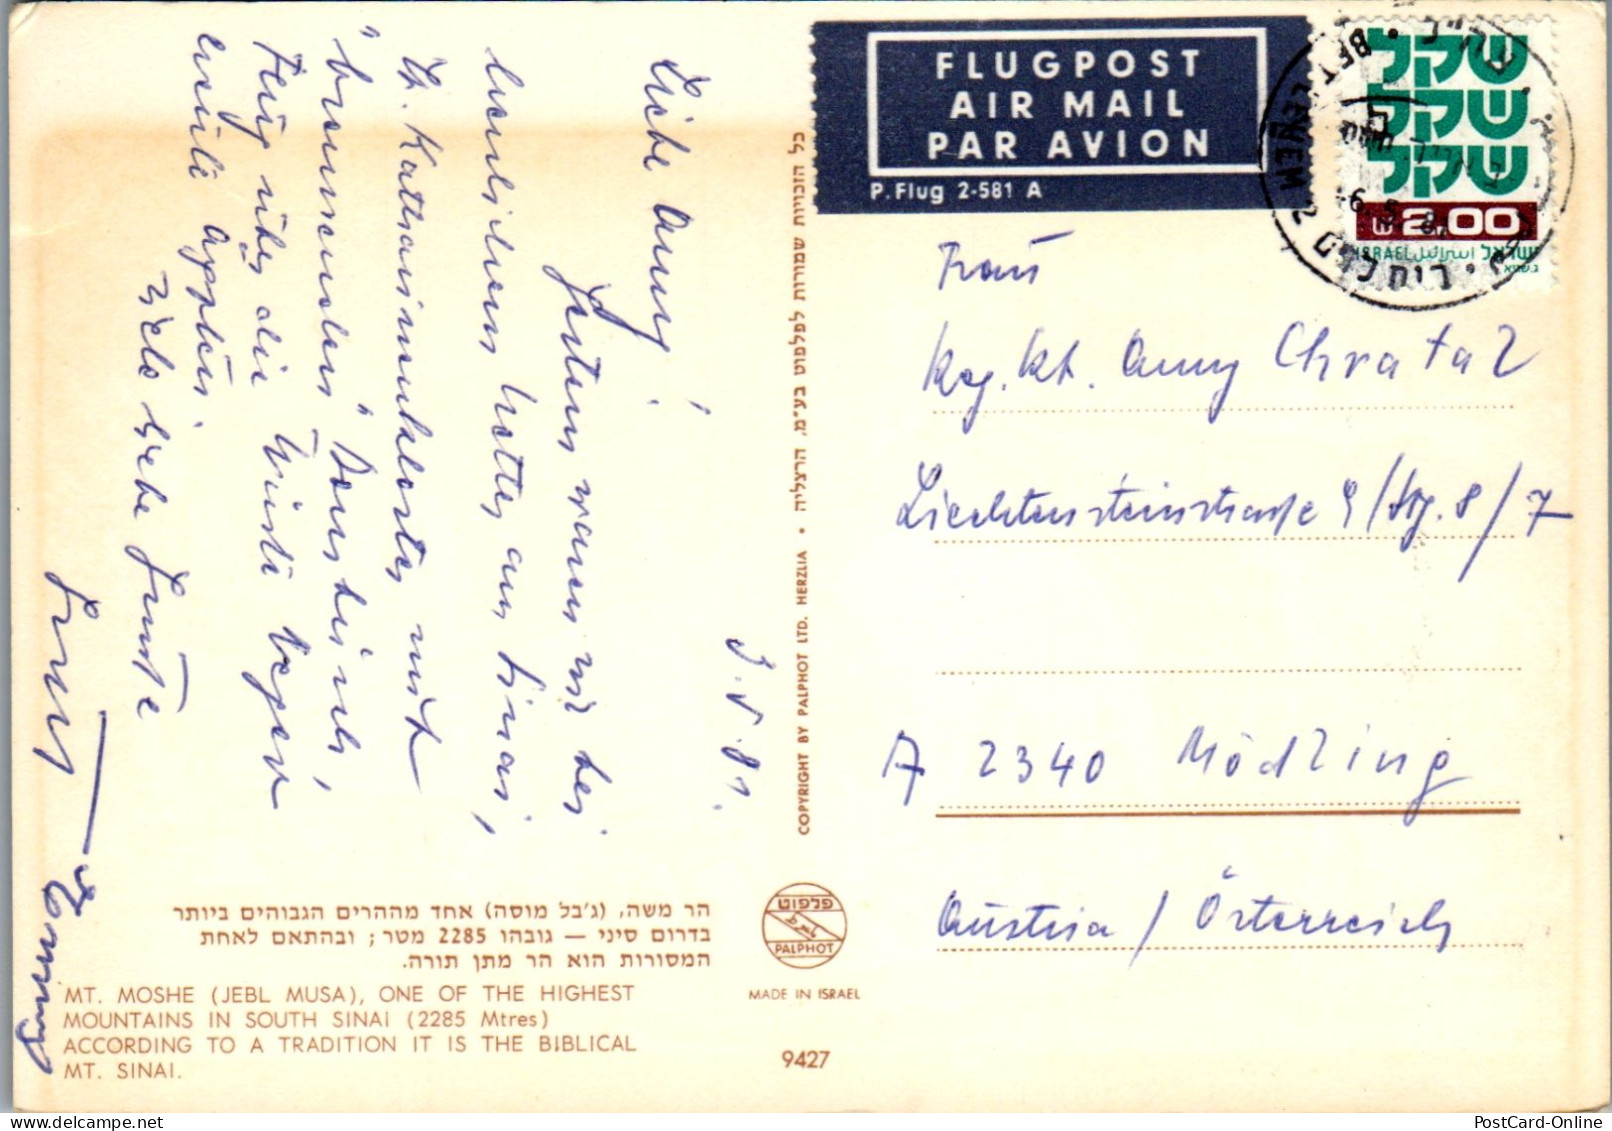 3.V.81.
Liebe Anny!
Gestern waren wir bei
herrlichem Wetter am Sinai,
St. Katharinenkloster mit
"brennendem" Dornbusch,
Flug über die Wüste
heute
viele liebe Grüße
FLUGPOST
AIR MAIL
PAR AVION
P. Flug 2-581 A
שקל
שקל
שקל
2.00
ISRAEL اسرائيل ישראל
BET LEHEM 2
Frau
Anny Chvatal
Liechtensteinstrasse 9/Stg. 8/7
A 2340 Mödling
Austria / Österreich
כל הזכויות שמורות לפלפוט בע"מ, הרצליה • COPYRIGHT BY PALPHOT LTD. HERZLIA
הר משה, (ג'בל מוסה) אחד מההרים הגבוהים ביותר
בדרום סיני — גובהו 2285 מטר; ובהתאם לאחת
המסורות הוא הר מתן תורה.
MT. MOSHE (JEBL MUSA), ONE OF THE HIGHEST
MOUNTAINS IN SOUTH SINAI (2285 Mtres)
ACCORDING TO A TRADITION IT IS THE BIBLICAL
MT. SINAI.
פלפוט
PALPHOT
MADE IN ISRAEL
9427
PostCard-Online